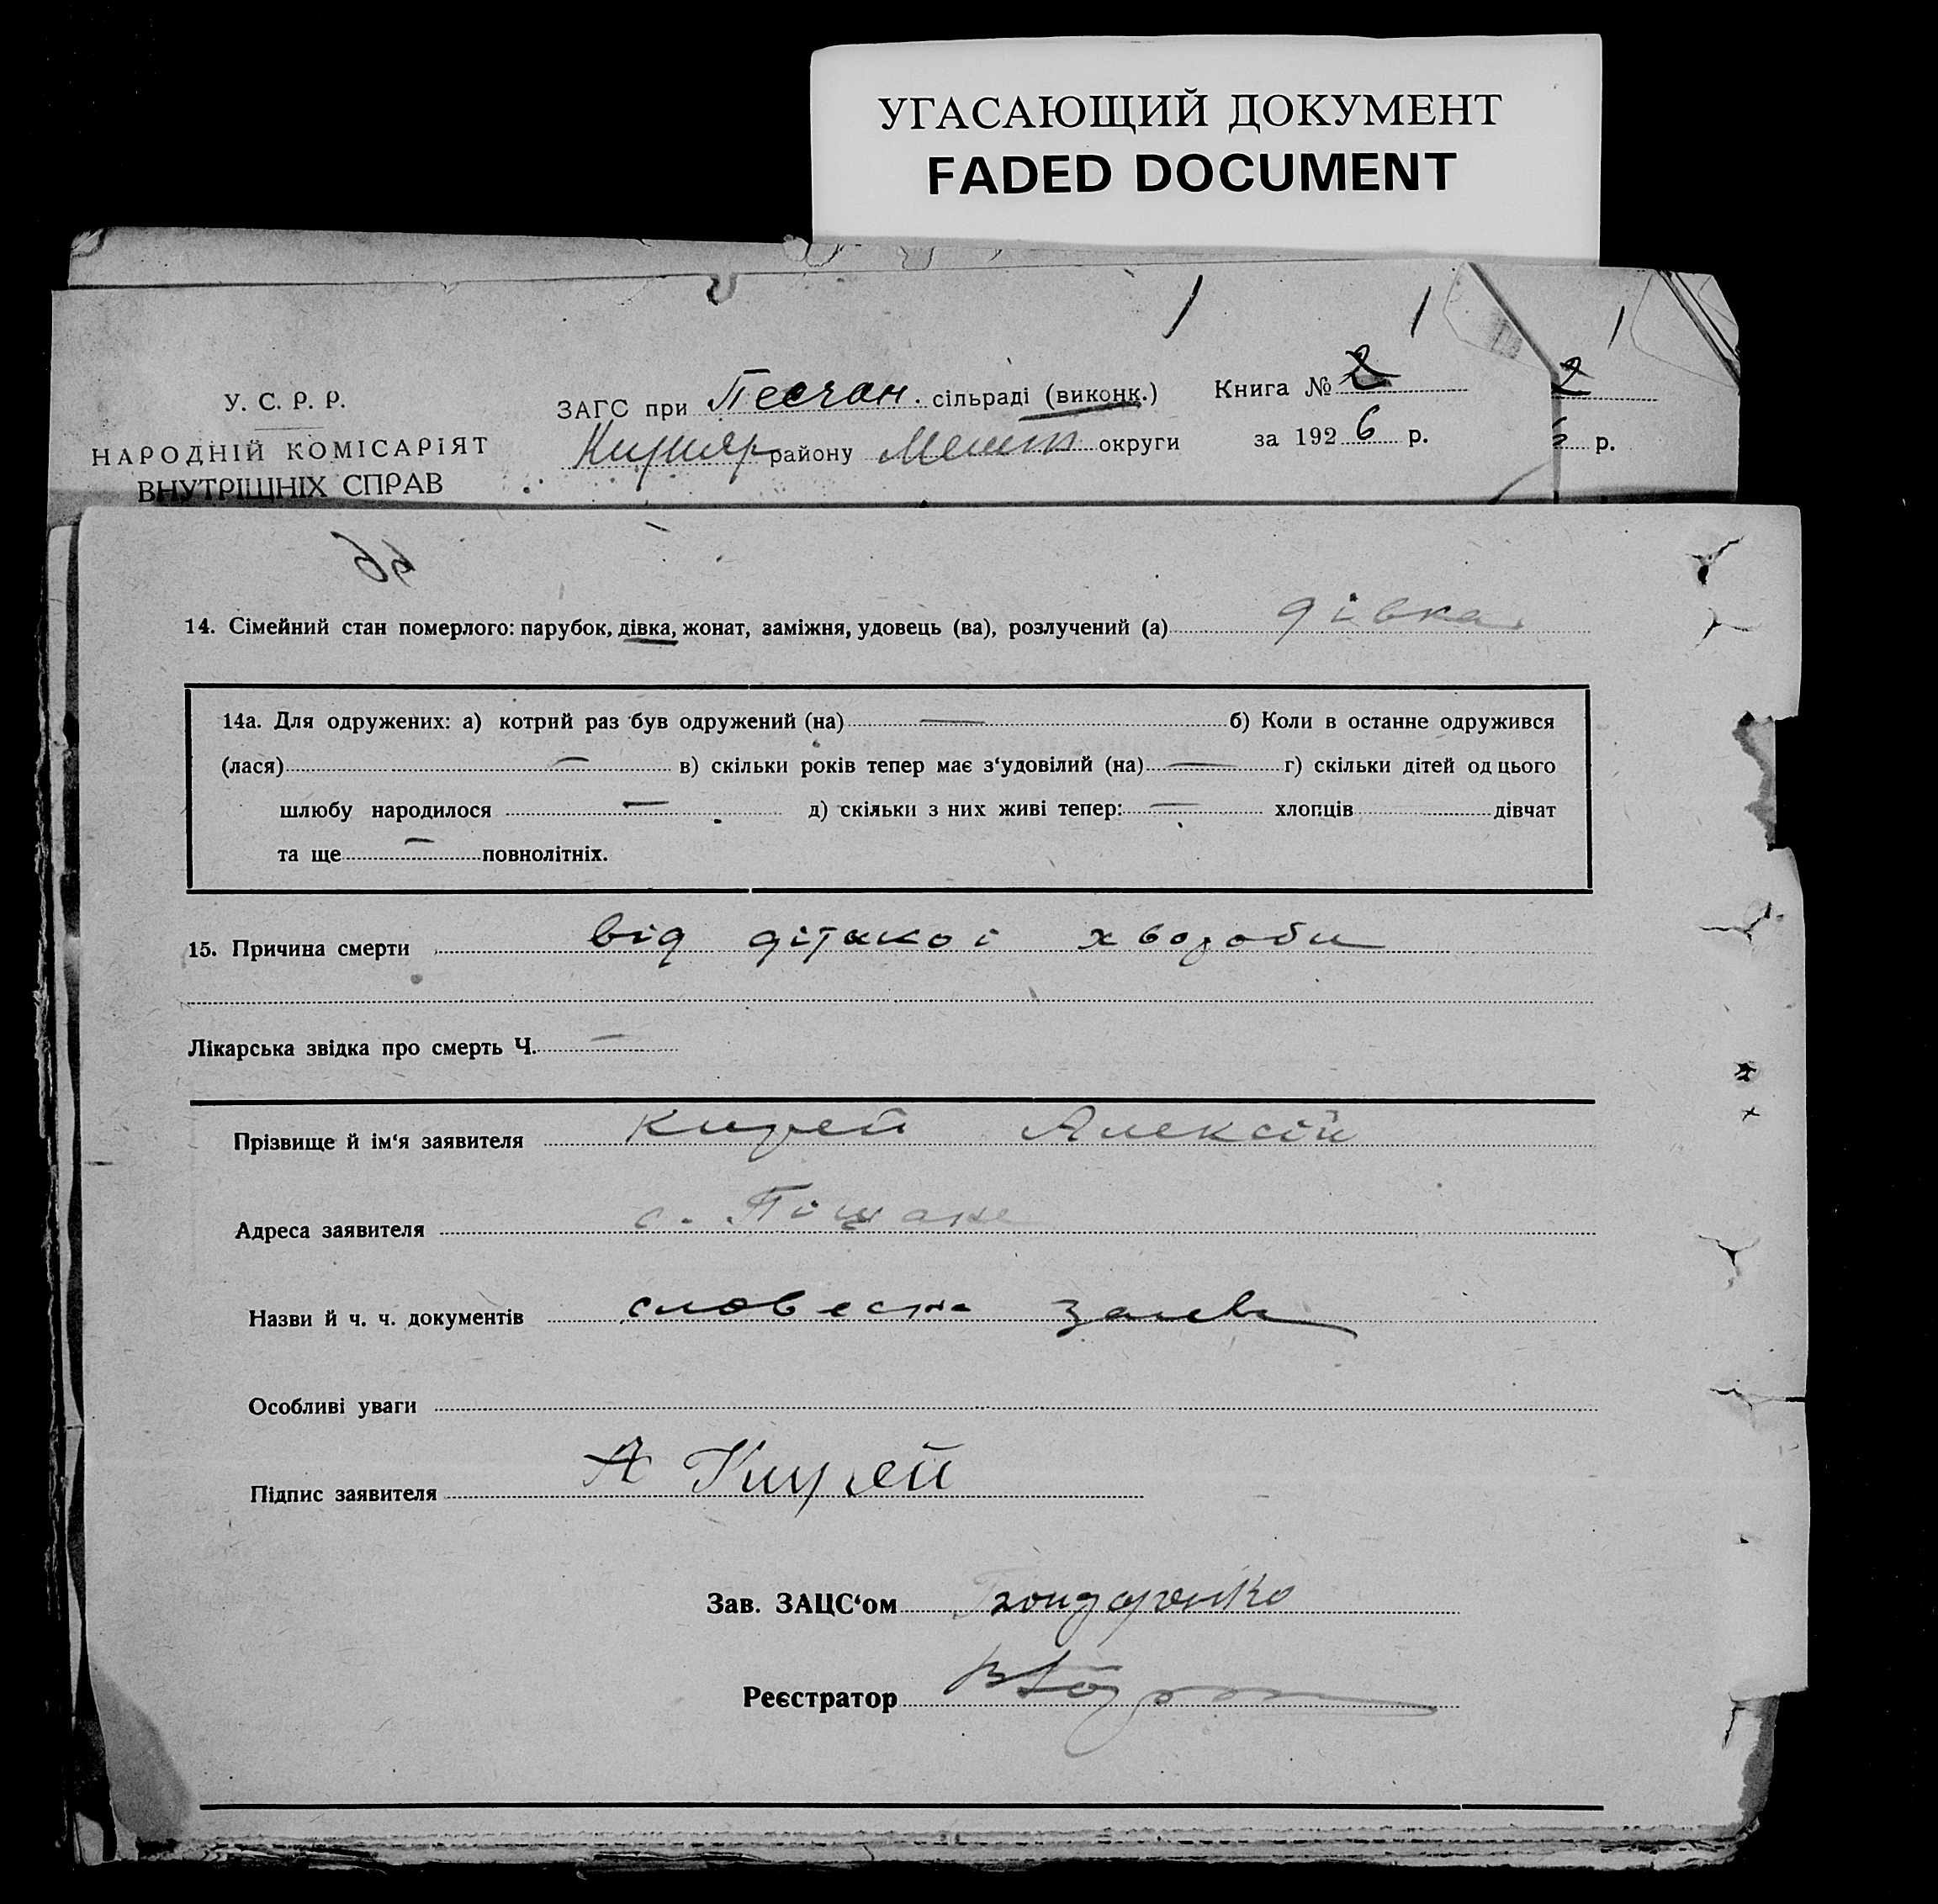 УГАСАЮЩИЙ ДОКУМЕНТ
FADED DOCUMENT
У. С. Р. Р.
НАРОДНІЙ КОМІСАРІЯТ
ВНУТРІШНІХ СПРАВ
ЗАГС при Песчан. сільраді (виконк.)
району округи
Книга № 2
за 1926 р.
2
6 р.
46
14. Сімейний стан померлого: парубок, дівка, жонат, заміжня, удовець (ва), розлучений (а) дівка
14а. Для одружених: а) котрий раз був одружений (на) — б) Коли в останне одружився
(лася) — в) скільки років тепер має з‘удовілий (на) — г) скільки дітей од цього
шлюбу народилося — д) скільки з них живі тепер: — хлопців дівчат
та ще — повнолітніх.
15. Причина смерти від дітскоі хвороби
Лікарська звідка про смерть Ч. —
Прізвище й ім‘я заявителя Кирей Алексій
Адреса заявителя с. Пішане
Назви й ч. ч. документів словесна заява
Особливі уваги
Підпис заявителя А Кирей
Зав. ЗАЦС‘ом Бондаренко
Реєстратор